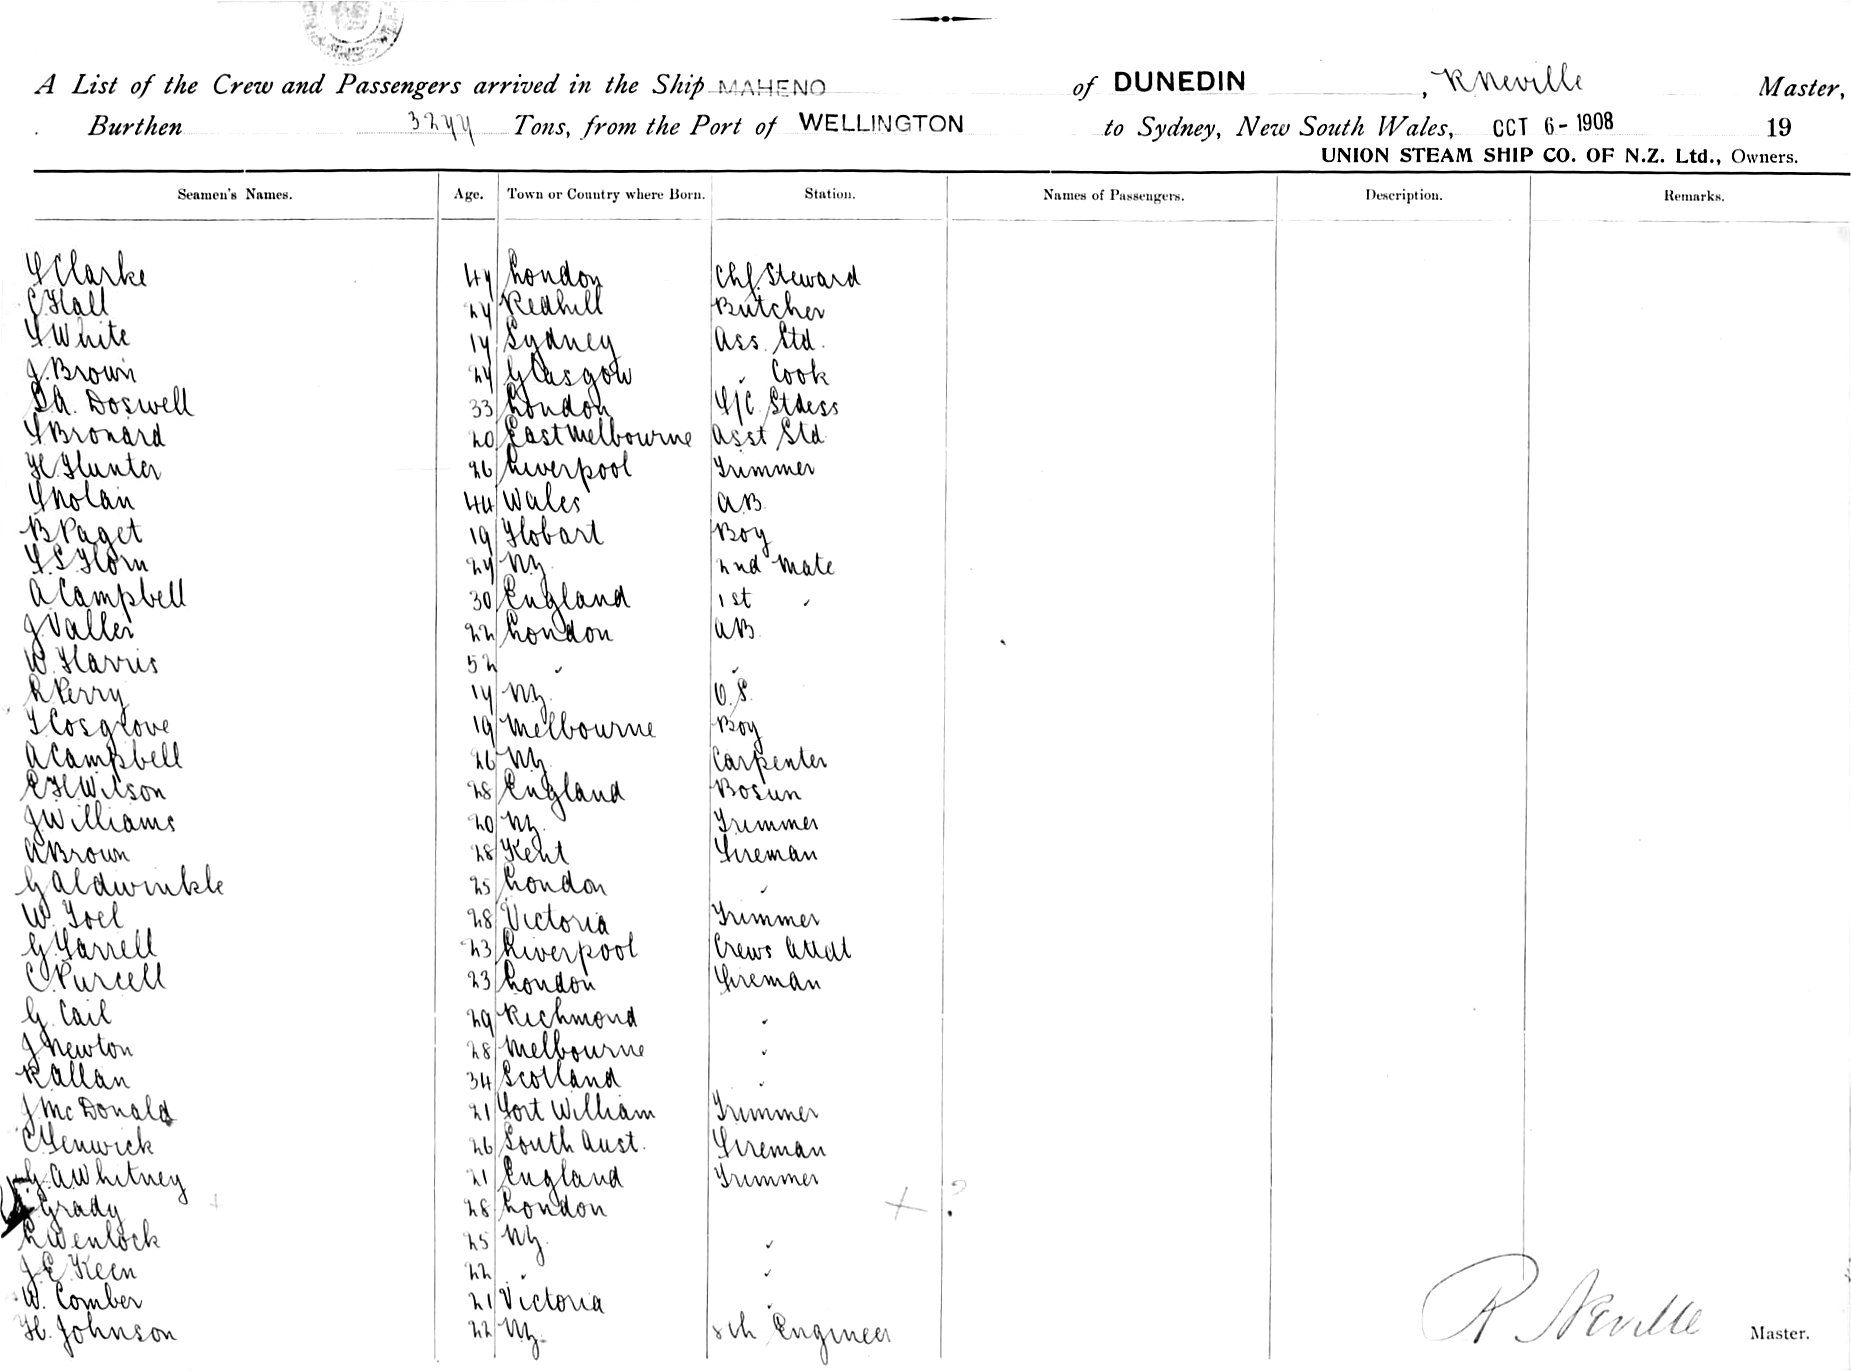 A List of the Crew and Passengers arrived in the Ship MAHENO of DUNEDIN , R Neville Master,
Burthen 3277 Tons, from the Port of WELLINGTON to Sydney, New South Wales, OCT 6 - 1908 19
UNION STEAM SHIP CO. OF N.Z. Ltd., Owners.
Seamen's Names. Age. Town or Country where Born. Station. Names of Passengers. Description. Remarks.
Clarke 47 London Chf. Steward
C Hall 27 Redhill Butcher
White 17 Sydney Ass. Std.
J. Brown 27 Glasgow " Cook
A. Doswell 33 London S/C Stdess
Bronard 20 East Melbourne Asst Std
H. Hunter 26 Liverpool Trimmer
Nolan 44 Wales AB.
B Paget 19 Hobart Boy
S Horn 27 NZ. 2nd Mate
A Campbell 30 England 1st "
J Valler 22 London AB.
W. Harris 52 " "
R Perry 17 NZ. O.S.
T Cosgrove 19 Melbourne Boy
A Campbell 26 NZ. Carpenter
E H Wilson 28 England Bosun
J Williams 20 NZ. Trimmer
A Brown 28 Kent Fireman
G Aldwinkle 25 London "
W. Joel 28 Victoria Trimmer
G. Farrell 23 Liverpool Crews Attdt
C. Purcell 23 London Fireman
G. Cail 29 Richmond "
J Newton 28 Melbourne "
R Allan 34 Scotland "
J McDonald 21 Fort William Trimmer
C Fenwick 26 South Aust. Fireman
G. A Whitney 21 England Trimmer
Grady 28 London + ?
R Wenlock 25 NZ. "
J E Keen 22 " "
W. Comber 21 Victoria "
H. Johnson 22 NZ. 8th Engineer
R Neville Master.